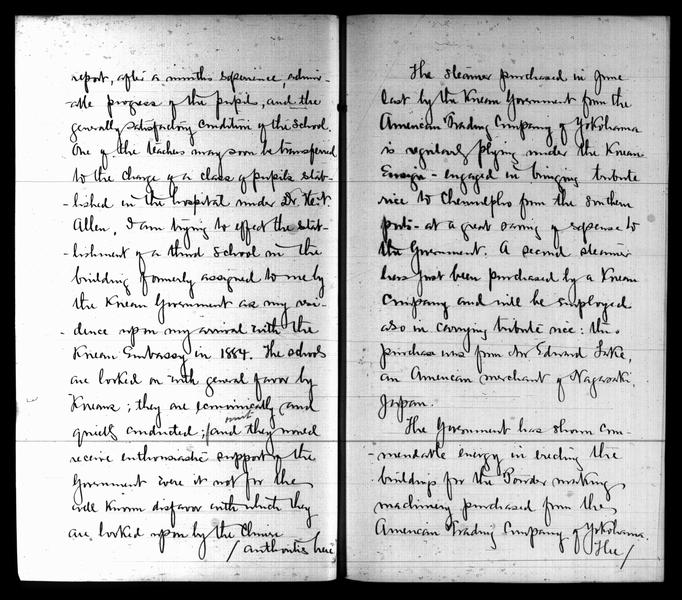 report, after a months experience, admir-
-able progress of the pupils, and the
generally satisfactory condition of the school.
One of the teachers may soon be transferred
to the charge of a class of pupils estab-
-lished in the hospital under Dr. H. N.
Allen. I am trying to effect the estab-
-lishment of a third school in the
building formerly assigned to me by
the Korean Government as my resi-
-dence upon my arrival with the
Korean Embassy in 1884. The schools
are looked on with general favor by
Koreans; they are economically and
quietly conducted; and they would
receive enthusiastic support of the
Government were it not for the
well known disfavor with which they
are looked upon by the Chinese
/ authorities here
The steamer purchased in June
last by the Korean Government from the
American Trading Company of Yokohama
is regularly plying under the Korean
Ensign - engaged in bringing tribute
rice to Chemulpho from the southern
ports - at a great saving of expense to
the Government. A second steamer
has just been purchased by a Korean
Company and will be employed
also in carrying tribute rice: this
purchase was from Mr Edward Lake,
an American merchant of Nagasaki,
Japan.
The Government has shown com-
-mendable energy in erecting the
buildings for the Powder making
machinery purchased from the
American Trading Company of Yokohama.
The /